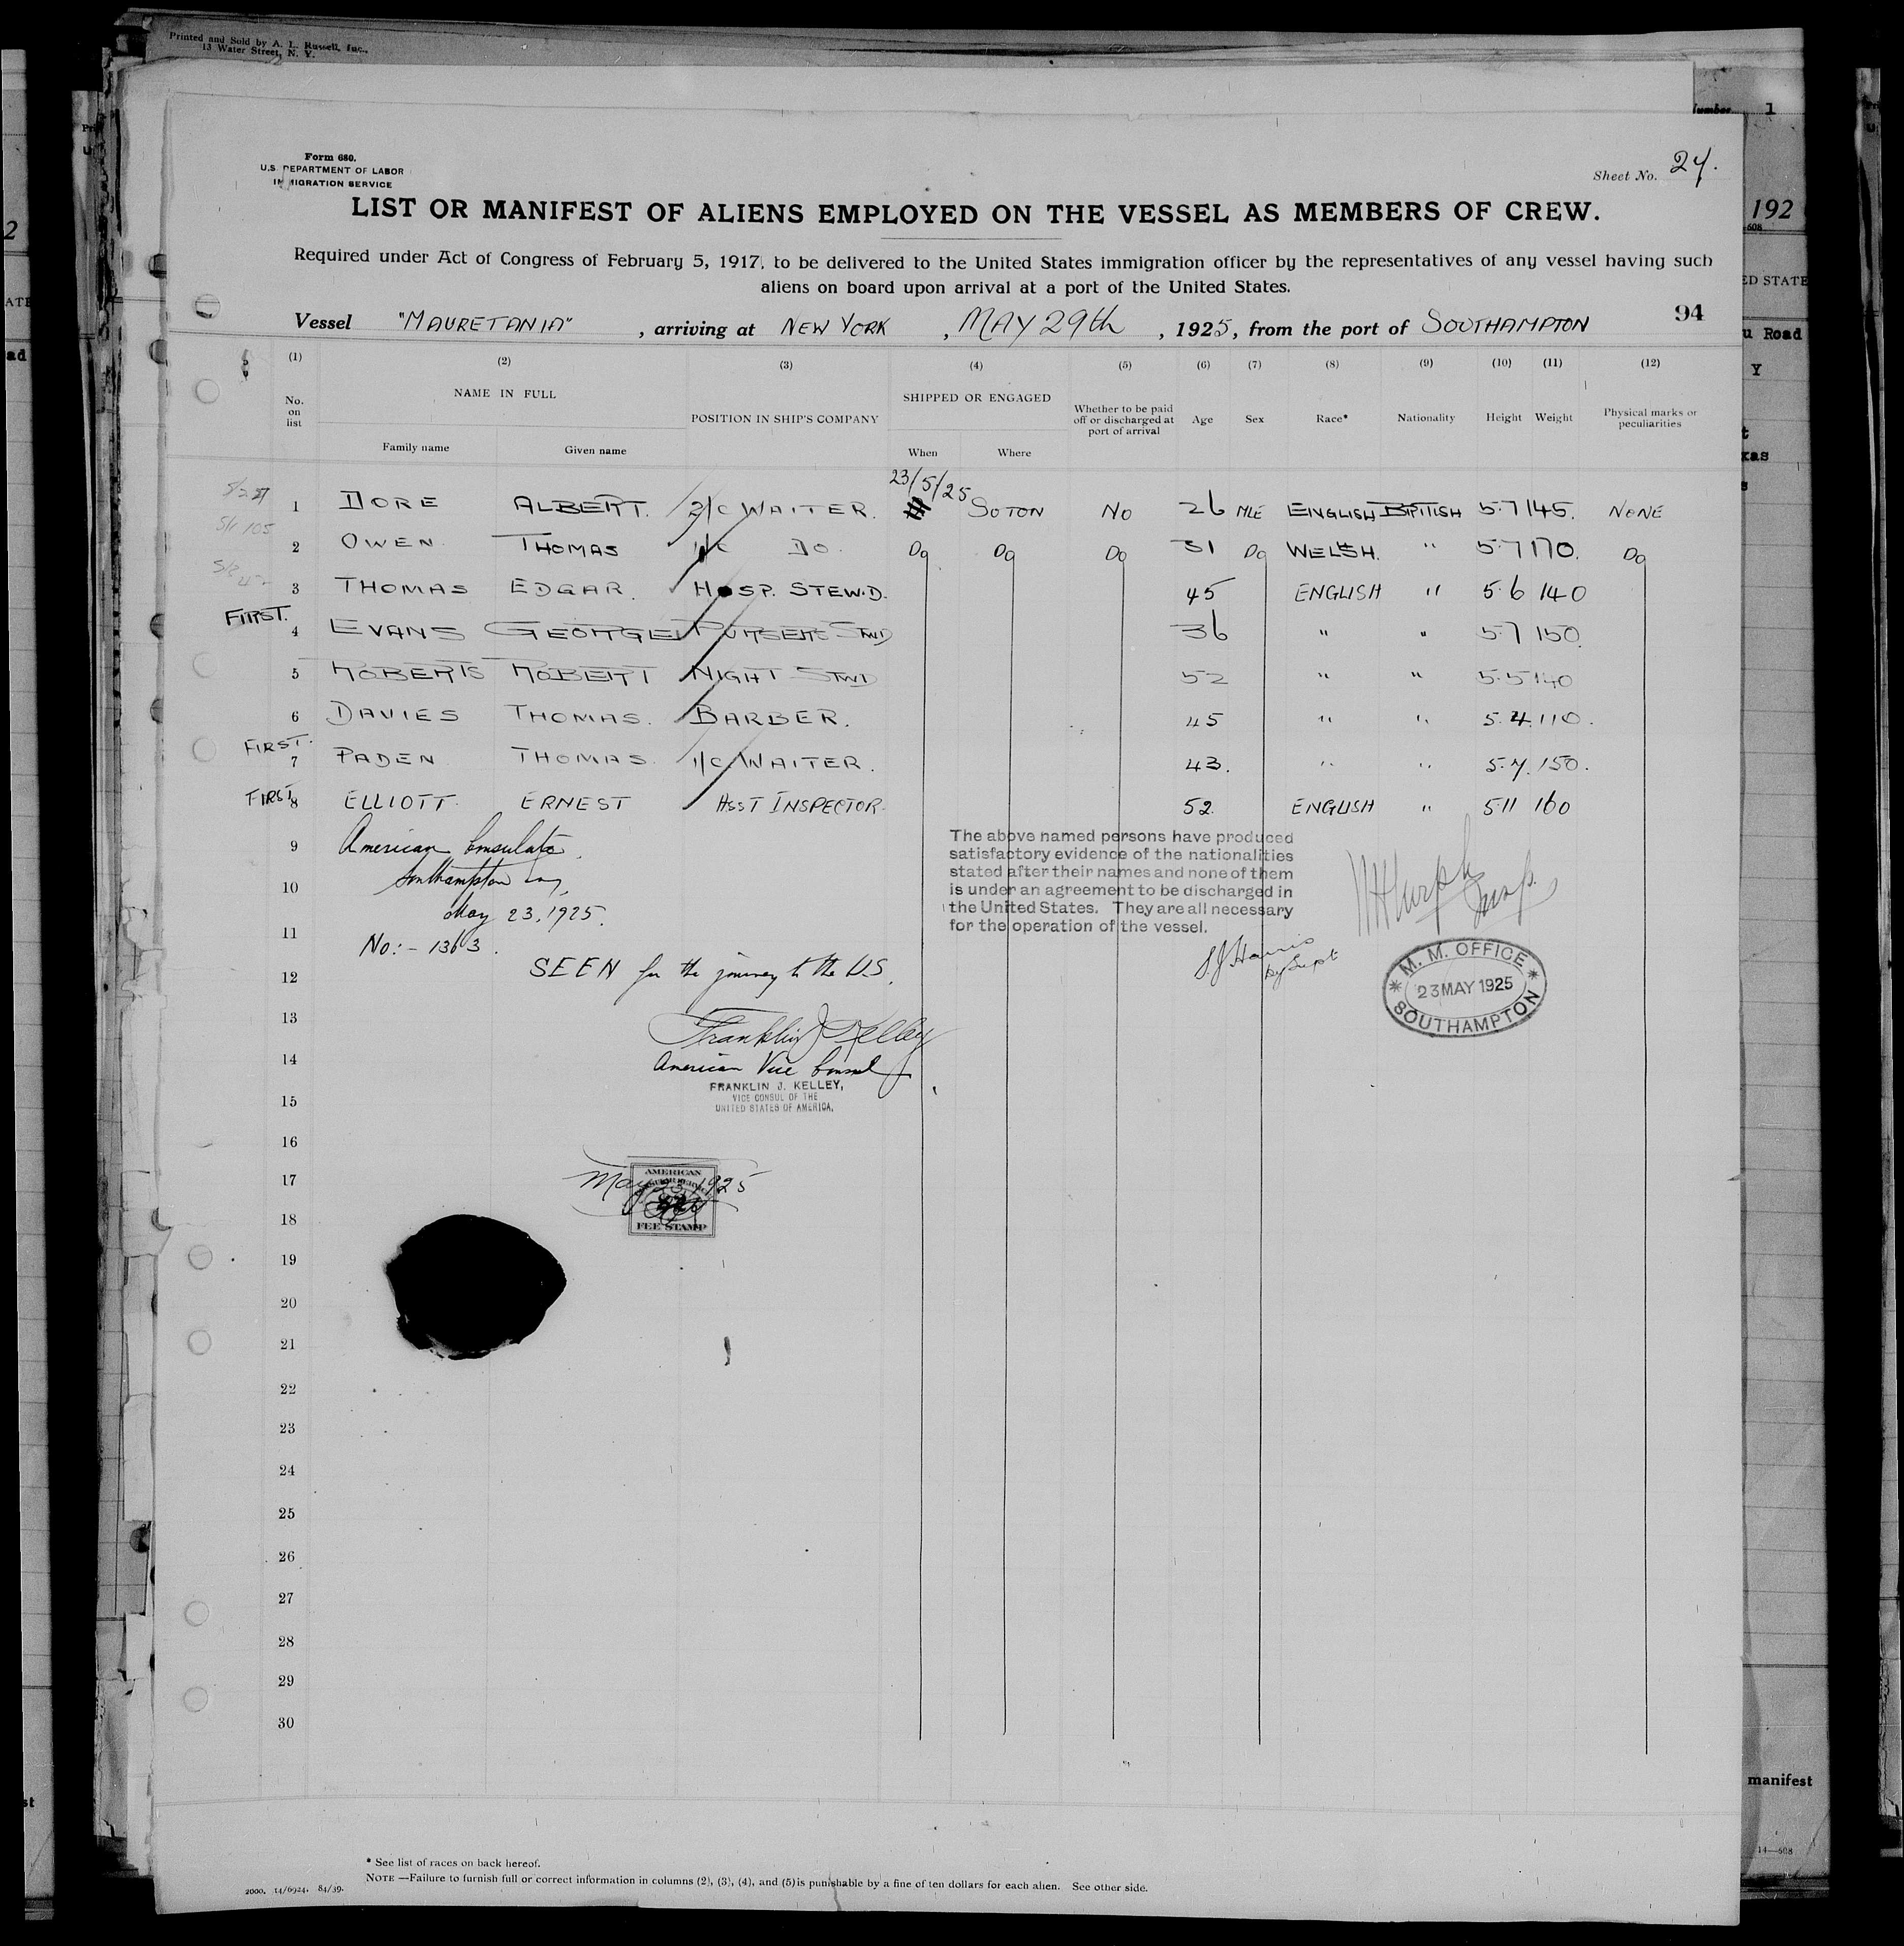 Printed and Sold by A. L. Russell, Inc.,
13 Water Street, N. Y.
Form 680.
U.S. DEPARTMENT OF LABOR
IMMIGRATION SERVICE
Sheet No. 24.
LIST OR MANIFEST OF ALIENS EMPLOYED ON THE VESSEL AS MEMBERS OF CREW.
Required under Act of Congress of February 5, 1917, to be delivered to the United States immigration officer by the representatives of any vessel having such
aliens on board upon arrival at a port of the United States.
94
Vessel "MAURETANIA", arriving at NEW YORK, MAY 29th, 1925, from the port of SOUTHAMPTON
(1) (2) (3) (4) (5) (6) (7) (8) (9) (10) (11) (12)
No. on list NAME IN FULL POSITION IN SHIP'S COMPANY SHIPPED OR ENGAGED Whether to be paid off or discharged at port of arrival Age Sex Race* Nationality Height Weight Physical marks or peculiarities
Family name Given name When Where
23/5/25
1 DORE ALBERT. 2/C WAITER. SOTON NO 26 MLE ENGLISH BRITISH 5.7 145. NONE
2 OWEN THOMAS 1/C DO. Do Do Do 31 Do WELSH. " 5.7 170. Do
3 THOMAS EDGAR. HOSP. STEWD. 45 ENGLISH " 5.6 140
FIRST. 4 EVANS GEORGE PURSERS STWD 36 " " 5.7 150.
5 ROBERTS ROBERT NIGHT STWD 52 " " 5.5 140
6 DAVIES THOMAS. BARBER. 45 " " 5.4. 110.
FIRST. 7 PADEN THOMAS. 1/C WAITER. 43. " " 5.7. 150.
FIRST 8 ELLIOTT. ERNEST ASST INSPECTOR. 52. ENGLISH " 5 11 160
The above named persons have produced
satisfactory evidence of the nationalities
stated after their names and none of them
is under an agreement to be discharged in
the United States. They are all necessary
for the operation of the vessel.
9 American Consulate,
10 Southampton Eng,
May 23, 1925.
11 No:- 1363.
12 SEEN for the journey to the U.S.
S.J Harris
Dy Supt
M. M. OFFICE
23 MAY 1925
SOUTHAMPTON
13 Franklin J Kelley
14 American Vice Consul
FRANKLIN J. KELLEY,
VICE CONSUL OF THE
UNITED STATES OF AMERICA.
15
16
17 May 23, 1925
AMERICAN
FEE STAMP
18
19
20
21
22
23
24
25
26
27
28
29
30
* See list of races on back hereof.
NOTE —Failure to furnish full or correct information in columns (2), (3), (4), and (5) is punishable by a fine of ten dollars for each alien. See other side.
2000. 14/6924. 84/39.
1
192
ED STATE
u Road
Y
manifest
14—608